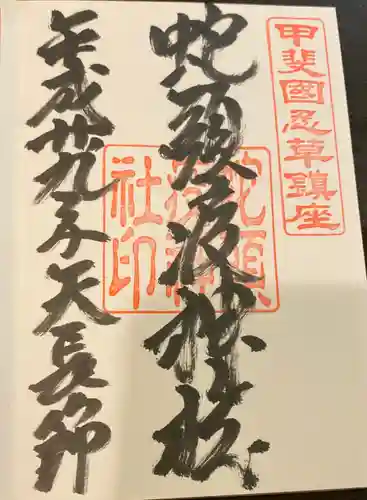 甲斐國忍草鎮座
蛇頭疫神社
蛇頭疫神社印
平成廿九年天長節